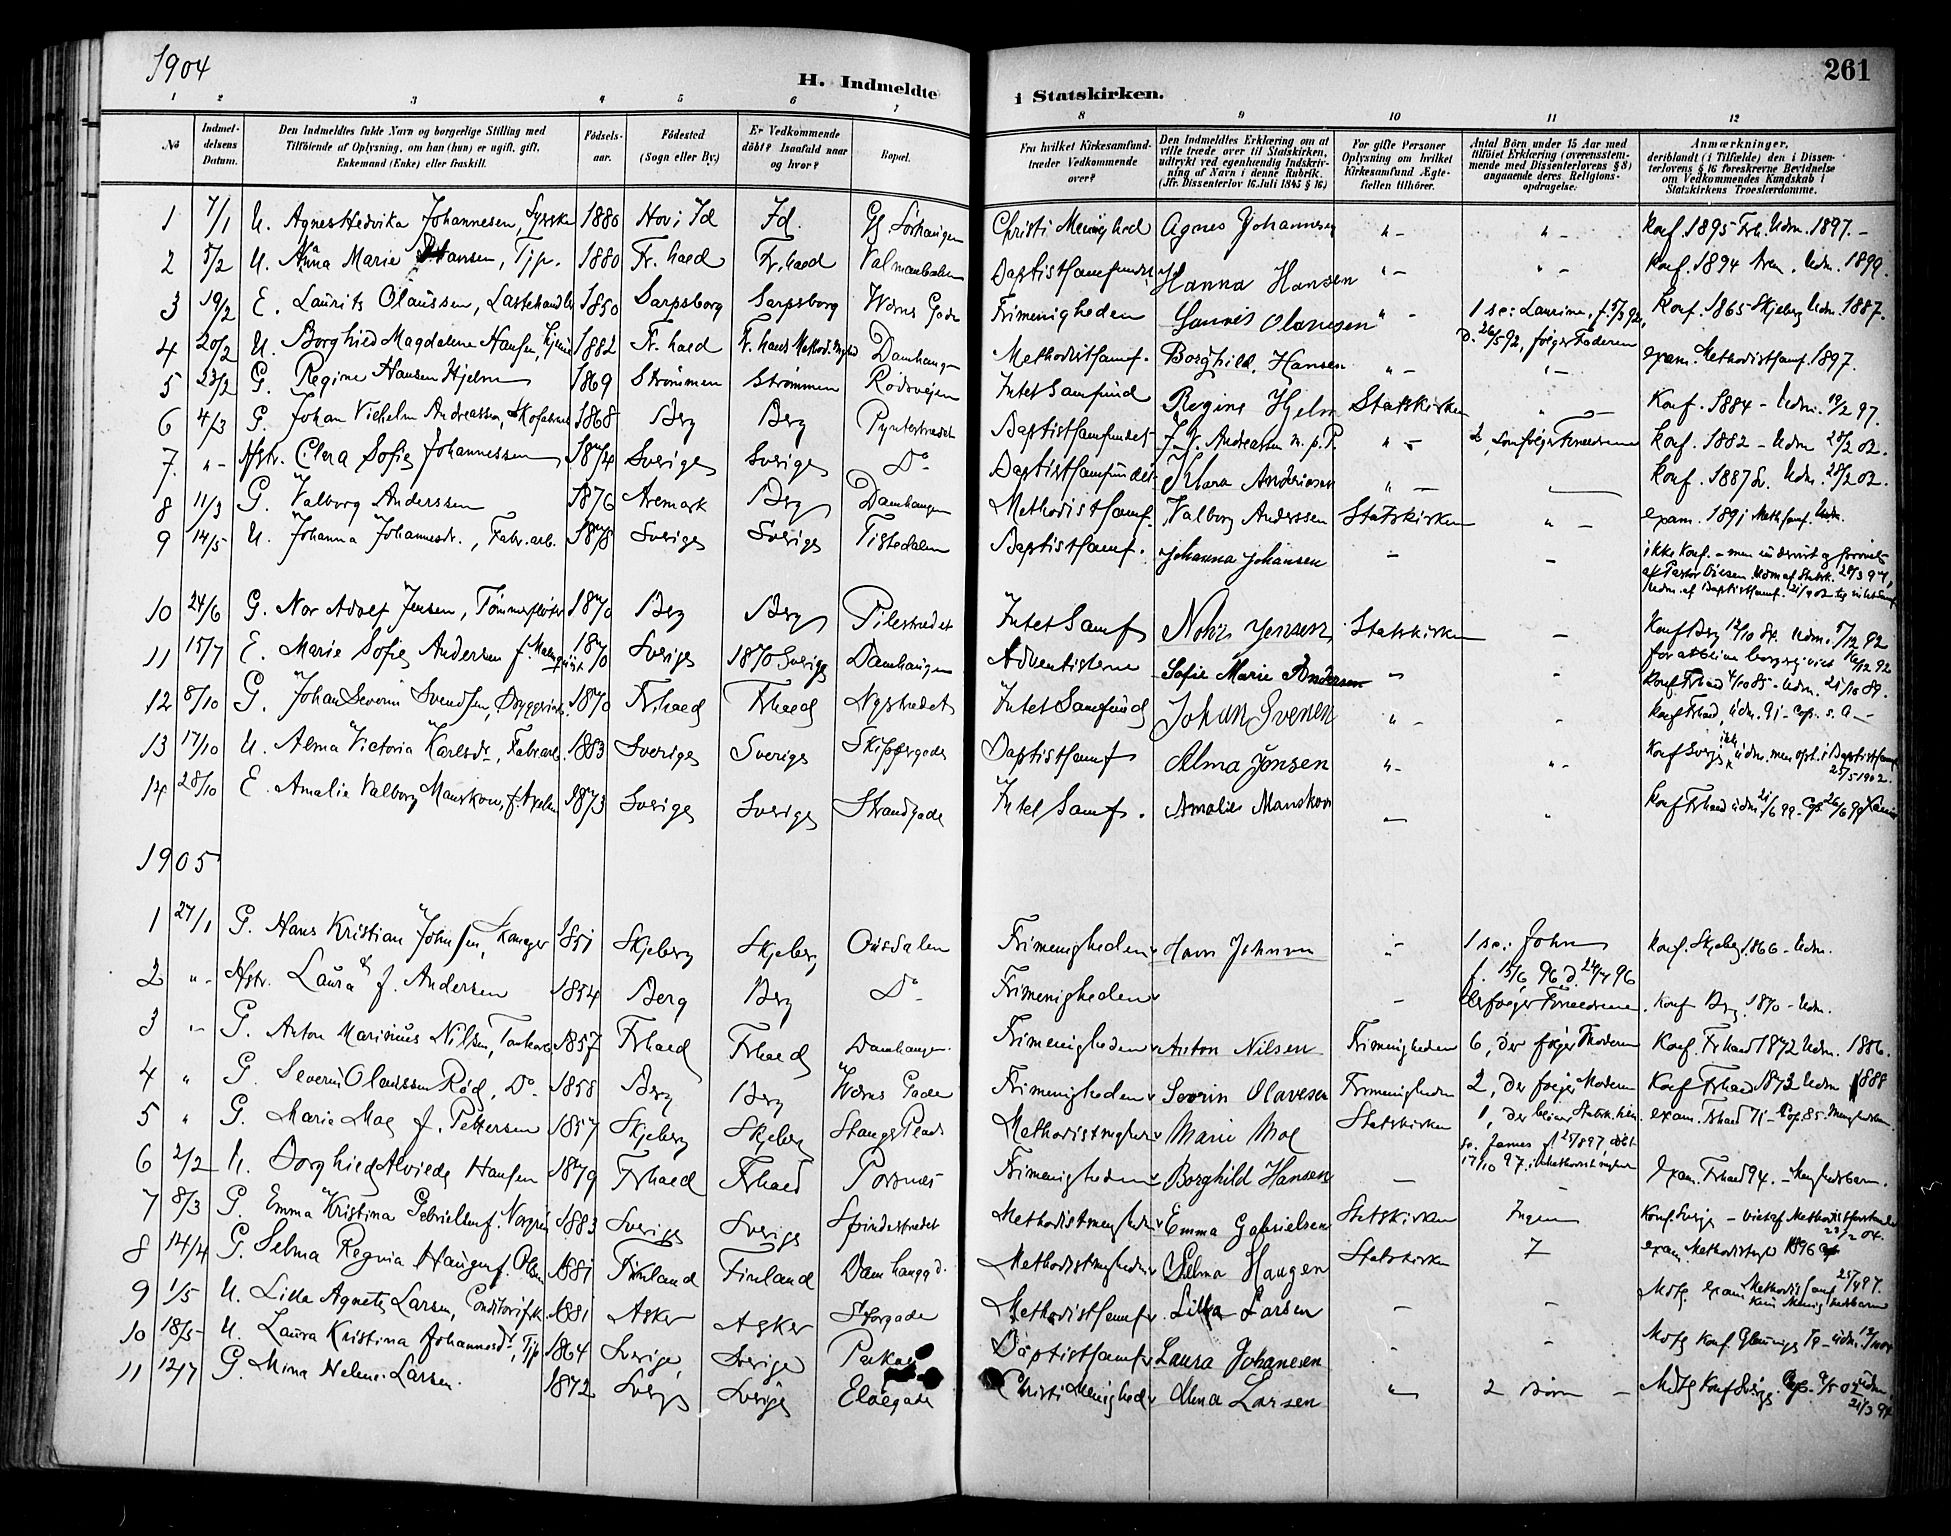 1904
H. Indmeldte i Statskirken.
261
1 2 3 4 5 6 7 8 9 10 11 12
No
Indmeldelsens Datum.
Den Indmeldtes fulde Navn og borgerlige Stilling med Tilføiende af Oplysning, om han (hun) er ugift, gift, Enkemand (Enke) eller fraskilt.
Fødselsaar.
Fødested (Sogn eller By.)
Er Vedkommende døbt? Isaafald naar og hvor?
Bopæl.
Fra hvilket Kirkesamfund træder Vedkommende over?
Den Indmeldtes Erklæring om at ville træde over til Statskirken, udtrykt ved egenhændig Indskrivning af Navn i denne Rubrik. (Jfr. Dissenterlov 16 Juli 1845 § 16.)
For gifte Personer Oplysning om hvilket Kirkesamfund Ægtefællen tilhører.
Antal Børn under 15 Aar med tilføiet Erklæring (overensstemmende med Dissenterlovens § 8) angaaende deres Religionsopdragelse.
Anmærkninger, deriblandt (i Tilfælde) den i Dissenterlovens § 16 foreskrevne Bevidnelse om Vedkommendes Kundskab i Statskirkens Troeslærdomme.
1 7/1 U. Agnes Hedvika Johannesen, Syerske 1880 Hov i Id Id. Christi Menighed Agnes Johannsen " - " - Konf. 1895 Frh. Udm. 1897. -
2 5/2 U. Anna Marie Hansen, Tjp. 1880 Fr.hald Fr.hald Baptistsamfundet Hanna Hansen " - " - Konf. 1894 Udm. 1899.
3 19/2 E. Laurits Olaussen, Lastehandler 1850 Sarpsborg Sarpsborg Wærns Gade Frimenigheden Laurits Olaussen " - 1 sc: Laurine, f. 5/3 92, d. 26/5 92, følger Faderen Konf. 1865 Skjeberg Udm. 1887.
4 20/2 U. Borghild Magdalene Hansen, Tjeneste 1882 Fr.hald Fr.hald Methodi. Damhaugen Methodistsamf. Borghild. Hansen " - " - exam. Methodistsamf. 1897.
5 23/2 G. Regine Hansen Hjelm 1869 Strømmen Strømmen Rødsveien Intet Samfund Regine Hjelm Statskirken " - Konf. 1884 - Udm. 19/2 97.
6 4/3 G. Johan Vilhelm Andreassen, Skofabrik 1868 Berg Berg Pyntestrædet Baptistsamfundet J. V. Andreassen m. p. P. " - 2, som følger Forældrene Konf. 1882 - Udm 28/2 02.
7. " - Hstr. Clara Sofie Johannessen 1874 Sverige Sverige Do Baptistsamfundet Klara Andersen " - Konf. 1887 Udm. 28/2 02.
8 11/3 G. Valborg Anderssen 1876 Aremark Berg Damhaugen Methodistsamf. Valborg Anderssen Statskirken " - exam. 1891 Meth.samf. Udm.
9 14/5 U. Johanna Johannesdr., Fabr.arb. 1878 Sverige Sverige Tistedalen Baptistsamf. Johanna Johansen - - ikke Konf. - men undervist og prøvet af Pastor Udm af Statsk. 20/3 97, Udm. af Baptistsamf.
10 24/6 G. Nor Adolf Jensen, Tømmerfløter 1870 Berg Berg Pilestrædet Intet Samf Nohr Jensen Statskirken - Konf Berg 12/10 84. Udm. 5/12 92 for at blive borgerlig viet 16/12 92
11 15/7 E. Marie Sofie Andersen f. Malmquist 1870 Sverige 1870 Sverige Damhaugen Adventisterne Sofie Marie Andersen - - Konf. Frhald 4/10 85 - Udm. 21/10 89.
12 8/10 G. Johan Severin Svendsen, Bryggeriarb. 1870 Frhald Frhald Nystrædet Intet Samfund Johan Svensen " - - Konf Frhald, Udm. 91 - Cop. s. A -
13 17/10 U. Alma Victoria Karlsdr, Fabr.arb. 1883 Sverige Sverige Skippergade Baptistsamf Alma Jonsen " - " - Konf Sverige, ikke udm. men opt. i Baptistsamf 25/5 1902.
14 28/10 E. Amalie Valborg Manskow, f. Axelsen 1873 Sverige Sverige Strandgade Intet Samf. Amalie Manskow - " Konf Frhald udm 21/6 99 - Cop. 26/6 99
1905
1 27/1 G. Hans Kristian Johnsen, 1851 Skjeberg Skjeberg Ousdalen Frimenigheden Hans Johnsen " - 1 sc: John f. 15/6 96 d. 24/7 96 der følger Forældrene Konf. Skjeberg. 1866 - Udm.
2 " - Hstr. Laura f. Andersen 1854 Berg Berg Do Frimenigheden - Konf Berg 1870 - Udm.
3 " - G. Anton Marinius Nilsen, 1857 Frhald Frhald Damhaugen. Frimenigheden Anton Nilsen Frimenigheden 6, der følger Moderen Konf. Frhald 1872 Udm. 1886.
4 " G. Severin Olaussen Rød, Do 1858 Berg Berg Wærns Gade Frimenigheden Severin Olavesen Frimenigheden 2, der følger Moderen Konf Frhald 1873 Udm 1888
5 " G. Marie Moe f. Pettersen 1857 Skjeberg Skjeberg Stangs Plads Methodistmenighed Marie Moe Statskirken 1, der bliver Statsk. exam. Frhald 71 - Cop. 85 - sc. James f. døbt 17/10 97 i Methodistmenighed
6 2/2 U. Borghild Alvilde Hansen 1879 Frhald Frhald Porsnes Frimenigheden Borghild Hansen - - Exam. Frhald 94. - Menighedsbarn.
7 8/3 G. Emma Kristina Gabrielsen f. 1883 Sverige Sverige Spindestrædet Methodistmenigheden Emma Gabrielsen Statskirken Ingen Konf. Sverige - Viet af Methodistforstander 23/2 04.
8 14/4 G. Selma Regina Haugen f. Olsen 1881 Finland Finland Damhaugg d. Methodistmenigheden Selma Haugen Statskirken 7 exam. Methodistmgh 1896
9 1/5 U. Lilla Agnete Larsen, Conditorifrk 1881 Asker Asker Storgade Methodistsamf Lilla Larsen - - Motg exam Methodistsamf 25/4 97. Kun Menighedsbarn
10 18/5 U. Laura Kristina Johannesdr, Tjp 1864 Sverige Sverige Baptistsamf Laura Johanesen - - Motg Konf.
11 12/7 G. Mina Helene Larsen. 1872 Sverige Sverige Elvegade Christi Menighed Mina Larsen " 2 Børn - Motg Konf Sverige. Cop. 9/5 02 udm. 21/3 94